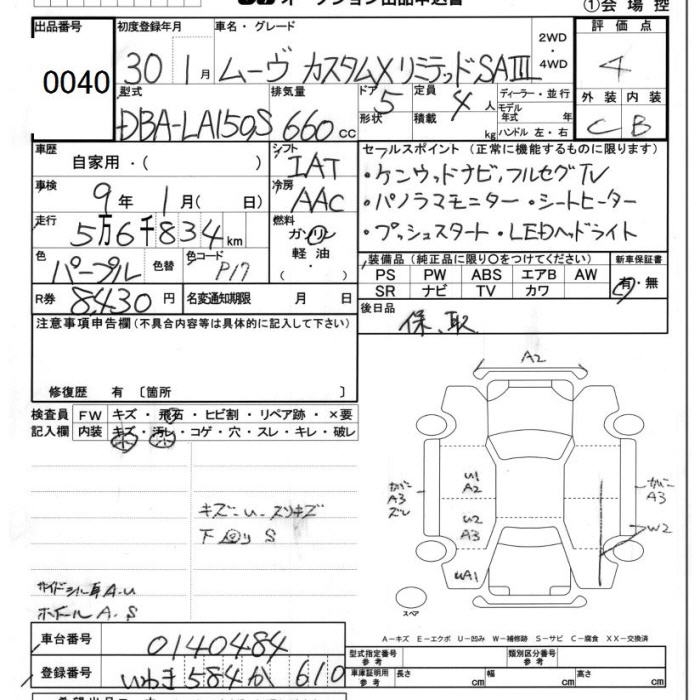 オークション出品申込書
①会場控
出品番号 初度登録年月 車名・グレード 評価点
0040 30 1月 ムーヴ カスタムXリミテッドSAIII 2WD・4WD 4
型式 排気量 ドア 定員 ディーラー・並行 外装 内装
DBA-LA150S 660cc 5 4人 モデル年式 年 C B
形状 積載 kg ハンドル 左・右
車歴 自家用・( ) シフト IAT セールスポイント(正常に機能するものに限ります)
車検 9年1月(日) 冷房 AAC ・ケンウッドナビ,フルセグTV
・パノラマモニター・シートヒーター
走行 5万6千834km 燃料 ガソリン・軽油・( ) ・プッシュスタート・LEDヘッドライト
色 パープル 色替 色コード P17 装備品(純正品に限り○をつけてください) 新車保証書
PS PW ABS エアB AW 有・無
SR ナビ TV カワ
R券 8,430円 名変通知期限 月 日 後日品
保、取
注意事項申告欄(不具合内容等は具体的に記入して下さい)
修復歴 有 〔箇所 〕
検査員記入欄 FW キズ・飛石・ヒビ割・リペア跡・×要
内装 キズ・汚レ・コゲ・穴・スレ・キレ・破レ
A2
U1
A2
U2
A3
UA1
A3
ズレ
A3
W2
キズ・U・スリキズ
下回りS
A.U
A.S
スペア
A-キズ E-エクボ U-凹み W-補修跡 S-サビ C-腐食 XX-交換済
車台番号 0140484 型式指定番号 参考 類別区分番号 参考
登録番号 いわき584か610 車庫証明用 参考 長さ cm 幅 cm 高さ cm